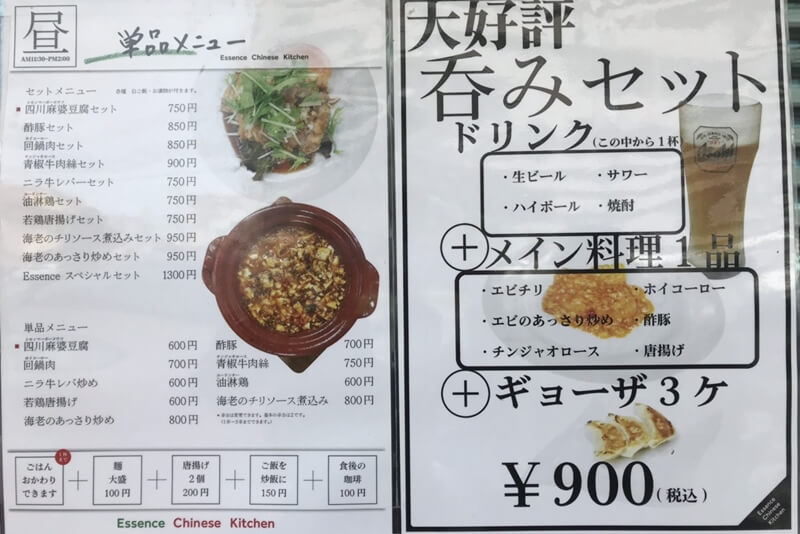 昼
AM11:30-PM2:00
単品メニュー
Essence Chinese Kitchen
セットメニュー
■四川麻婆豆腐セット 750円
酢豚セット 850円
回鍋肉セット 850円
青椒牛肉絲セット 900円
ニラ牛レバーセット 750円
油淋鶏セット 750円
若鶏唐揚げセット 750円
海老のチリソース煮込みセット 950円
海老のあっさり炒めセット 950円
Essence スペシャルセット 1300円
単品メニュー
■四川麻婆豆腐 600円
回鍋肉 700円
ニラ牛レバ炒め 600円
若鶏唐揚げ 600円
海老のあっさり炒め 800円
酢豚 700円
青椒牛肉絲 750円
油淋鶏 600円
海老のチリソース煮込み 800円
ごはん
おかわり
できます
+
麺
大盛
100円
+
唐揚げ
2個
200円
+
ご飯を
炒飯に
150円
+
食後の
珈琲
100円
Essence Chinese Kitchen
大好評
呑みセット
ドリンク(この中から1杯)
・生ビール ・サワー
・ハイボール ・焼酎
Asahi
+メイン料理1品
・エビチリ ・ホイコーロー
・エビのあっさり炒め ・酢豚
・チンジャオロース ・唐揚げ
+ギョーザ3ケ
¥900(税込)
Essence
Chinese
Kitchen